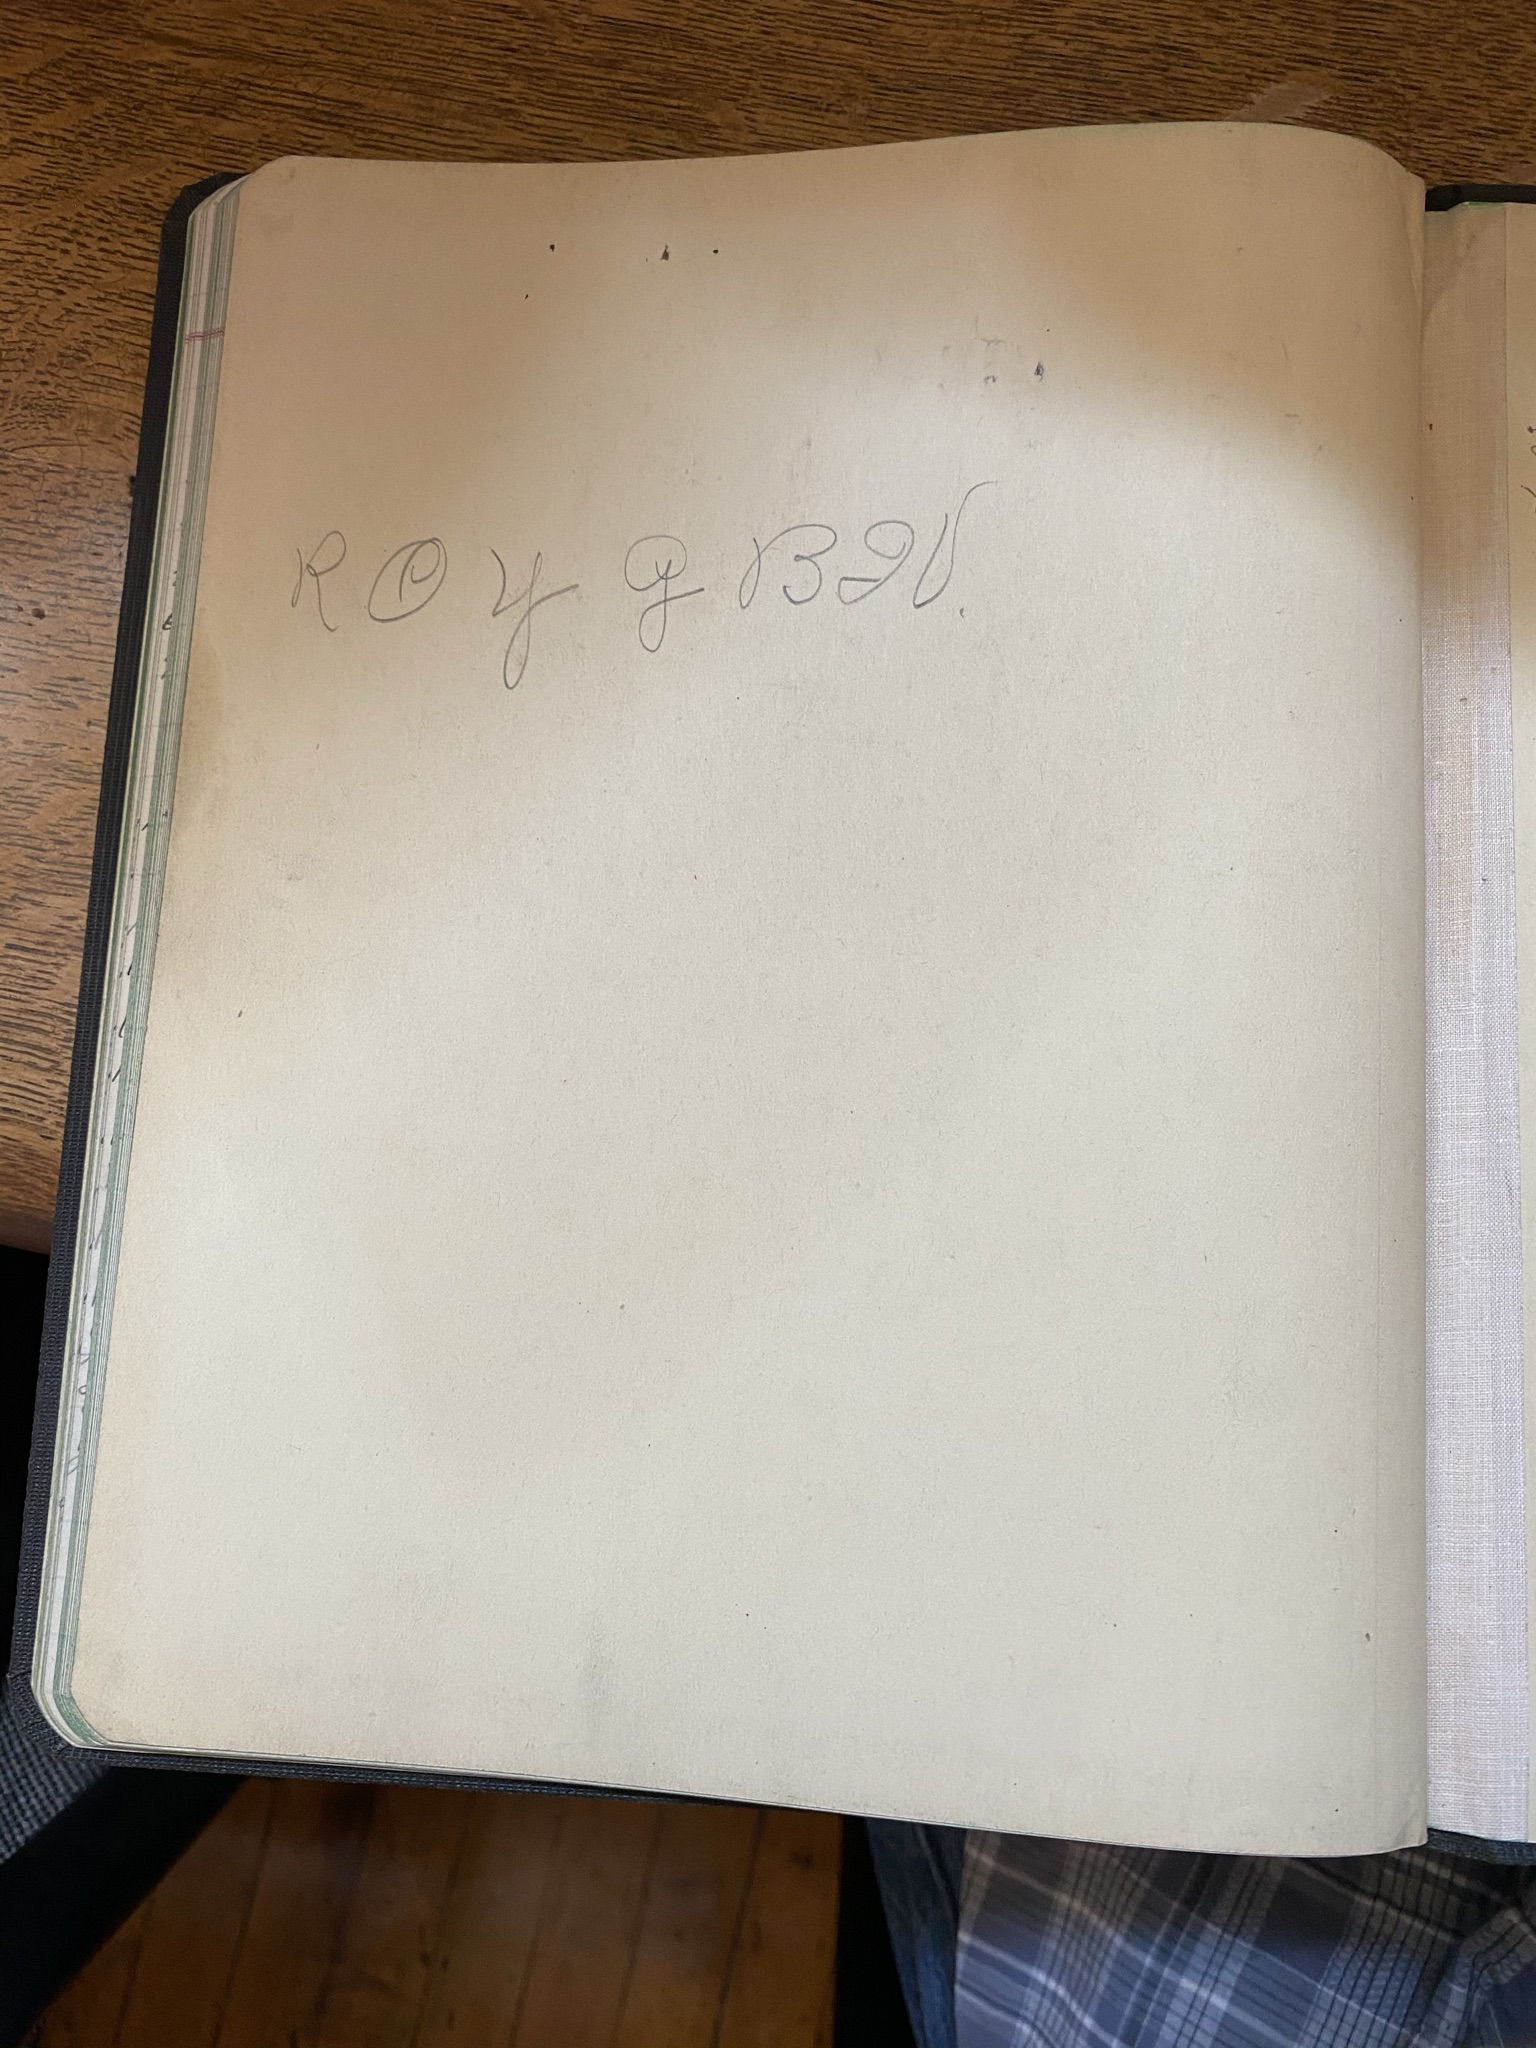 R O Y G B I V.